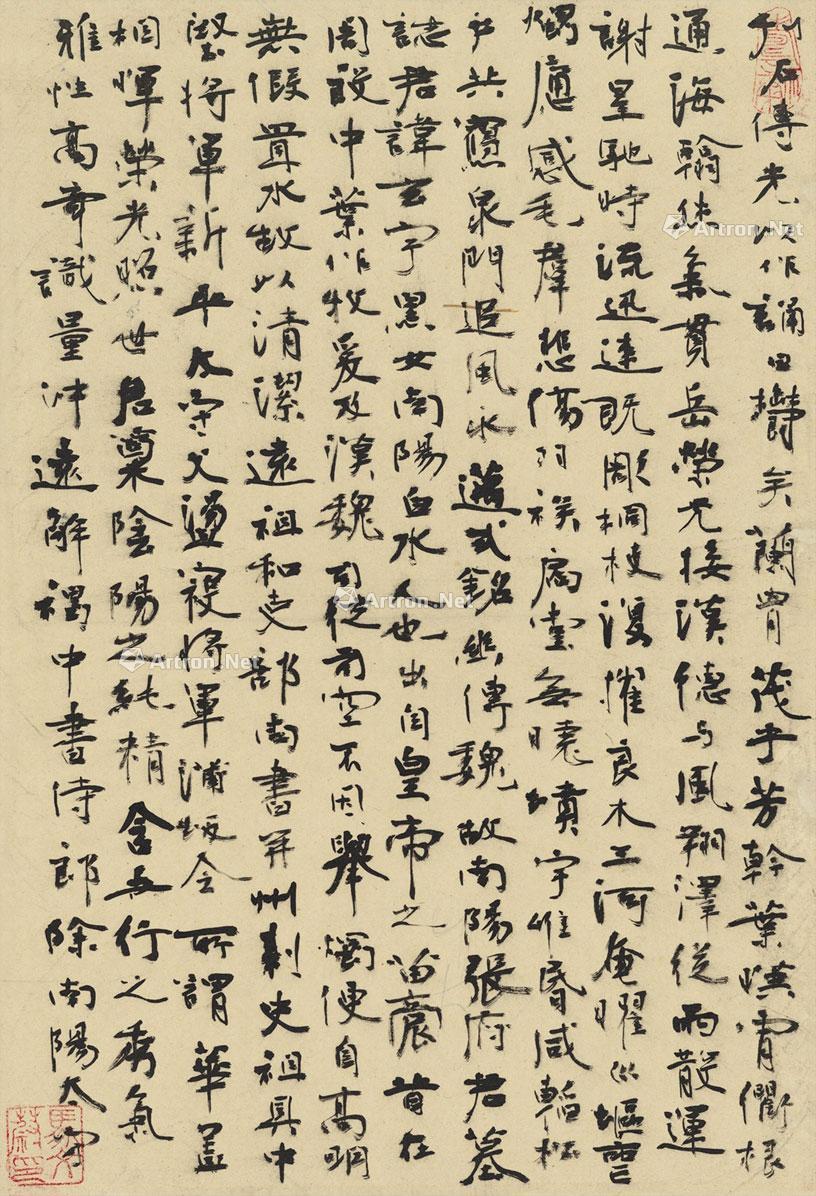 刊石傳光以作誦曰欝矣蘭胄茂乎芳幹葉暎霄衢根
通海翰体氣貫岳榮光接漢德与風翔澤從雨散運
謝星馳時流迅速既彫桐枝復摧良木三河奄曜川塸喪
燭應感毛羣悲傷羽族扃堂無曉墳宇惟昏咸韜松
戶共寢泉門追風永邁式銘幽傳魏故南陽張府君墓
誌君諱玄字黑女南陽白水人也出自皇帝之苗裔昔在
周設中葉作牧爰及漢魏司徒司空不因舉燭便自高明
無假置水故以清潔遠祖和吏部尚書并州刺史祖具中
堅將軍新平太守父盪寇將軍蒲坂令所謂華蓋
相暉榮光照世君稟陰陽之純精含五行之秀氣
雅性高奇識量沖遠解褐中書侍郎除南陽太守
Artron.Net
Artron.Net
Artron.Net
Artron.Net